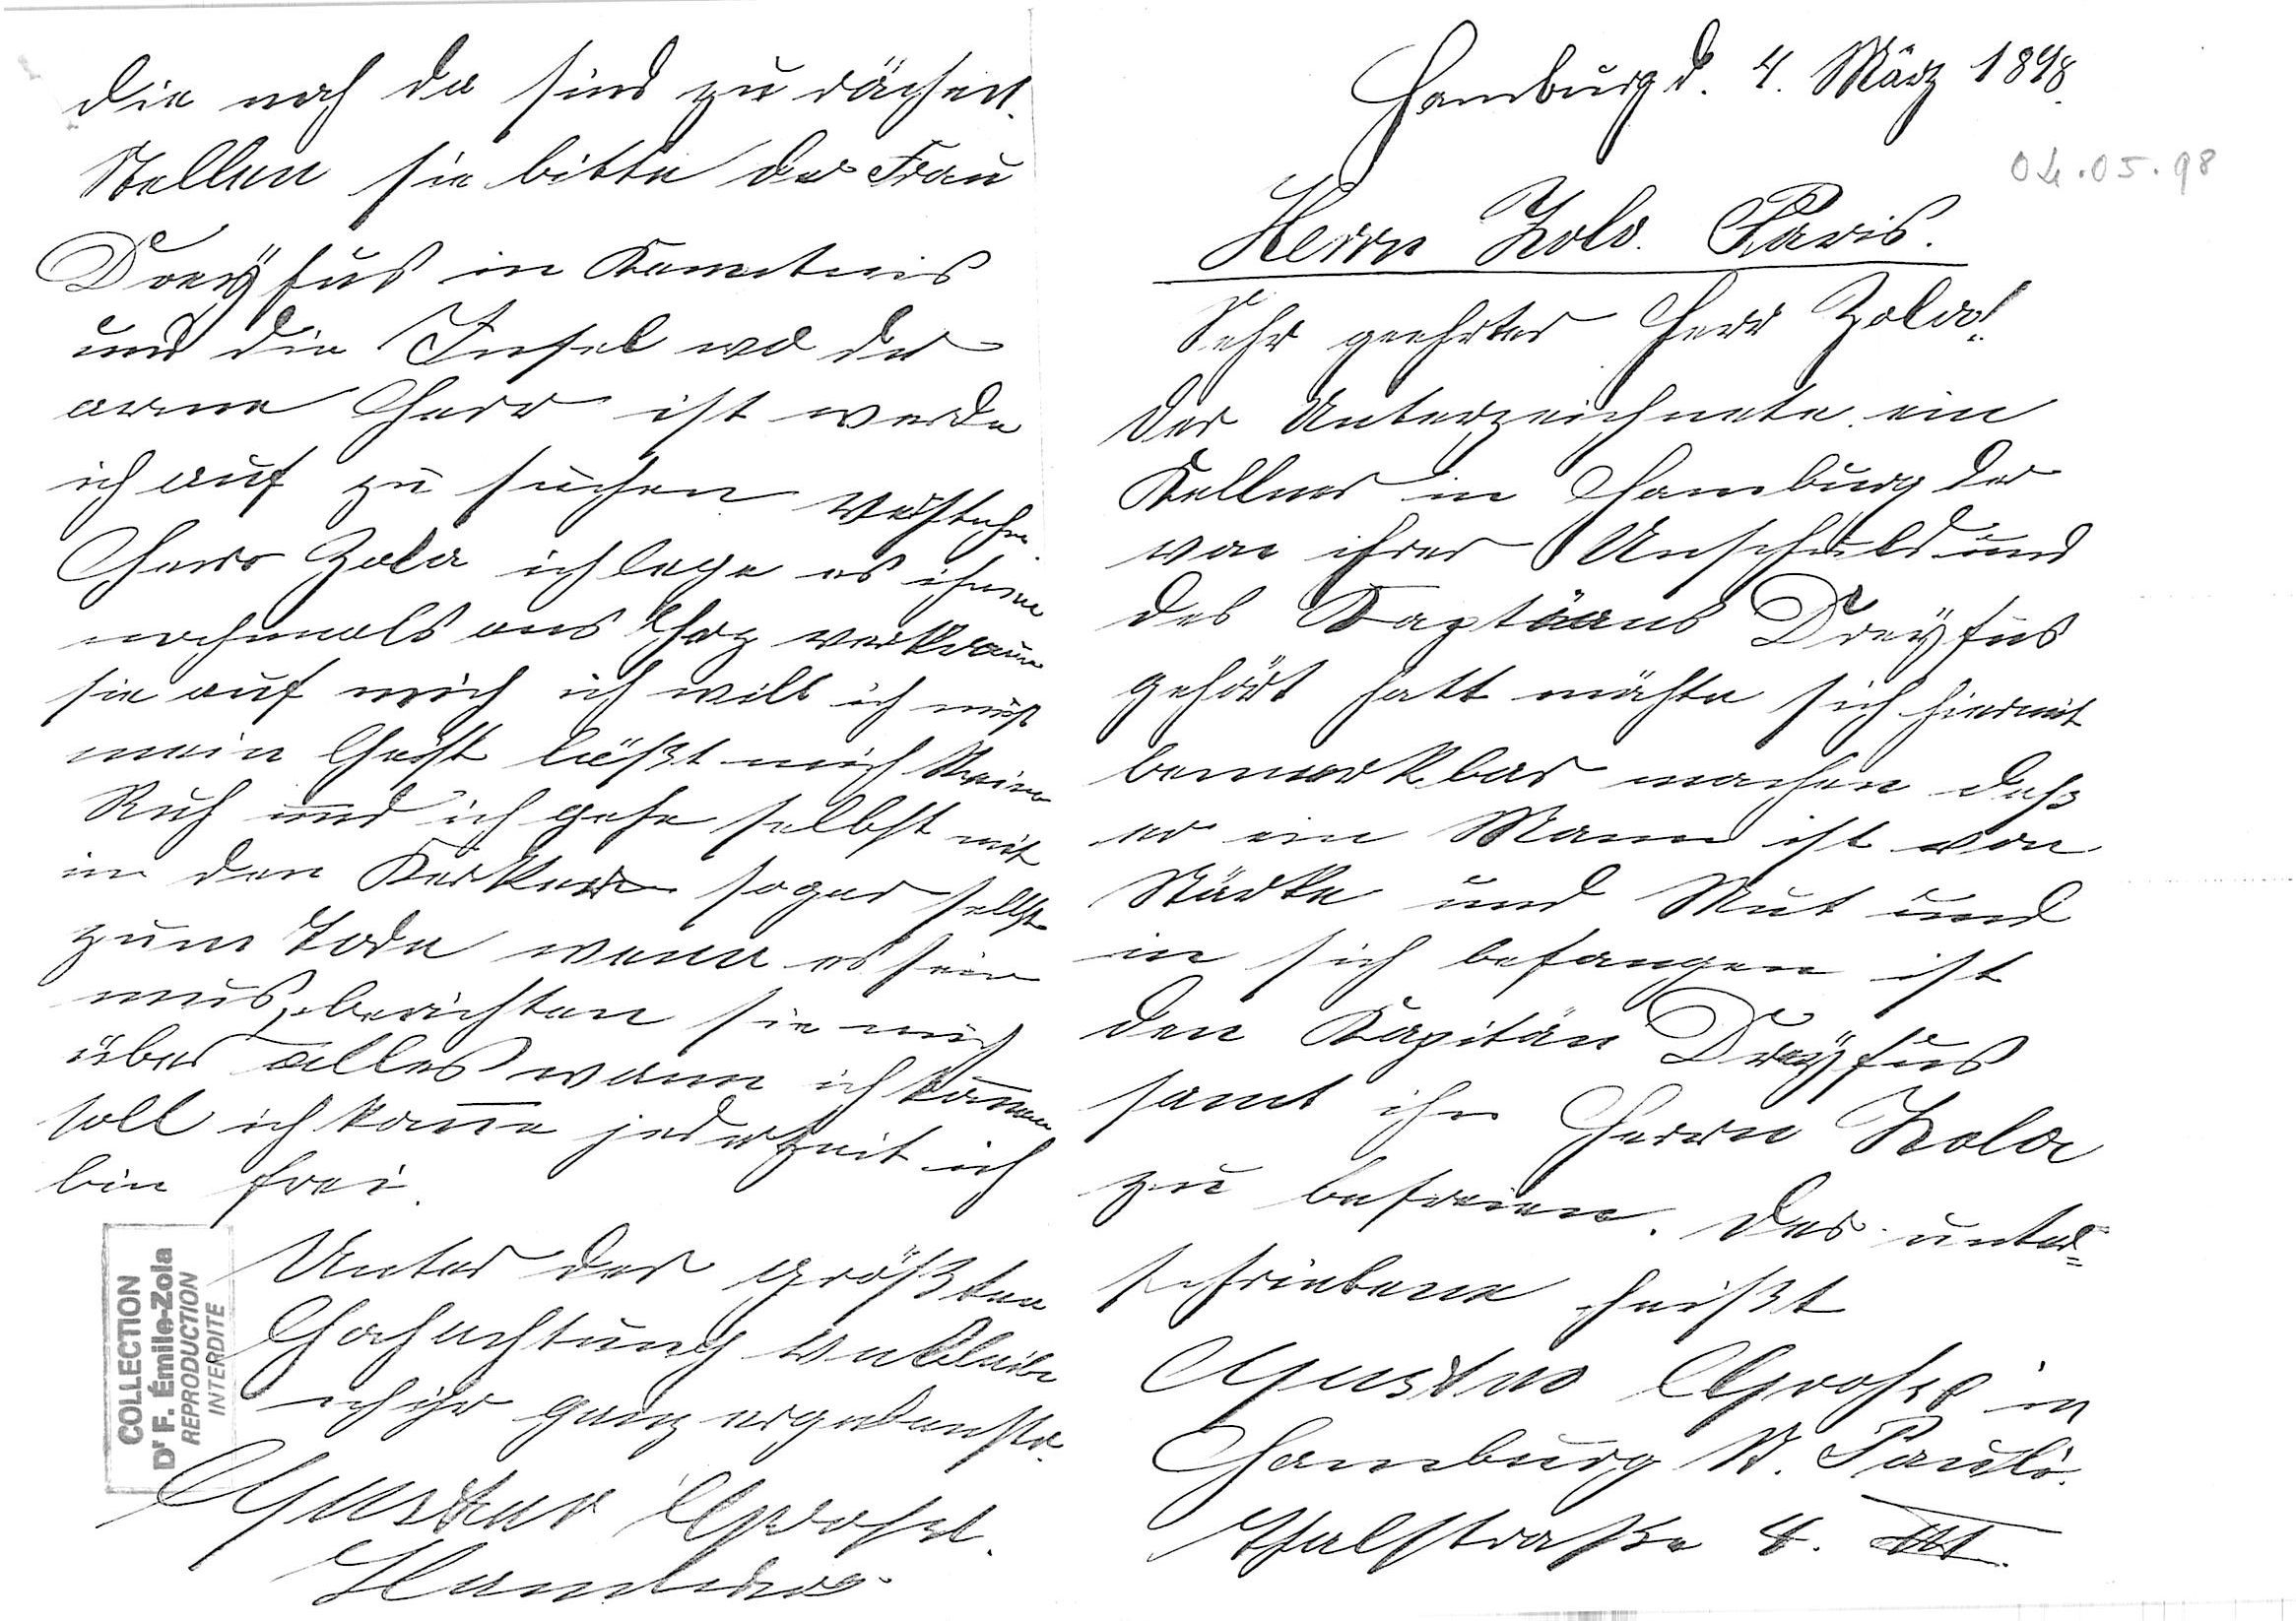 Hamburg d. 4. März 1898.
04.05.98
Herrn Zola. Paris.
Sehr geehrter Herr Zola!
Der Unterzeichnete ein
Kellner in Hamburg der
von ihrer Unschuld und
des Kaptäans Dreÿfus
gehört hatt möchte sich hiermit
bemerkbar machen daß
er ein Mann ist von
Stärke und Mut und
in sich befangen ist
den Kapitän Dreÿfus
samt ihr Herrn Zola
zu befreien. Der unter=
schriebene heißt
Gustav in
Hamburg St. Pauli.
Thalstraße 4. III.
die noch da sind zu rächen.
Stellen sie bitte der Frau
Dreÿfus in Kenntnis
und die Insel wo der
arme Herr ist werde
ich auf zu suchen verstehen.
Herr Zola ich lege es ihnen
nochmals ans Herz vertrauen
sie auf mich ich will ich muß
mein Geist läßt mich keine
Ruh und ich gehe selbst mit
in den Kerker sogar selbst
zum Tode wenn es sein
muß, berichten sie mich
über alles wann ich kommen
soll ich kome jederzeit ich
bin frei.
Unter der größten
Hochachtung verbleibe
ich ihr ganz ergebenster
Gustav
Hamburg
COLLECTION
Dr F. Émile-Zola
REPRODUCTION
INTERDITE